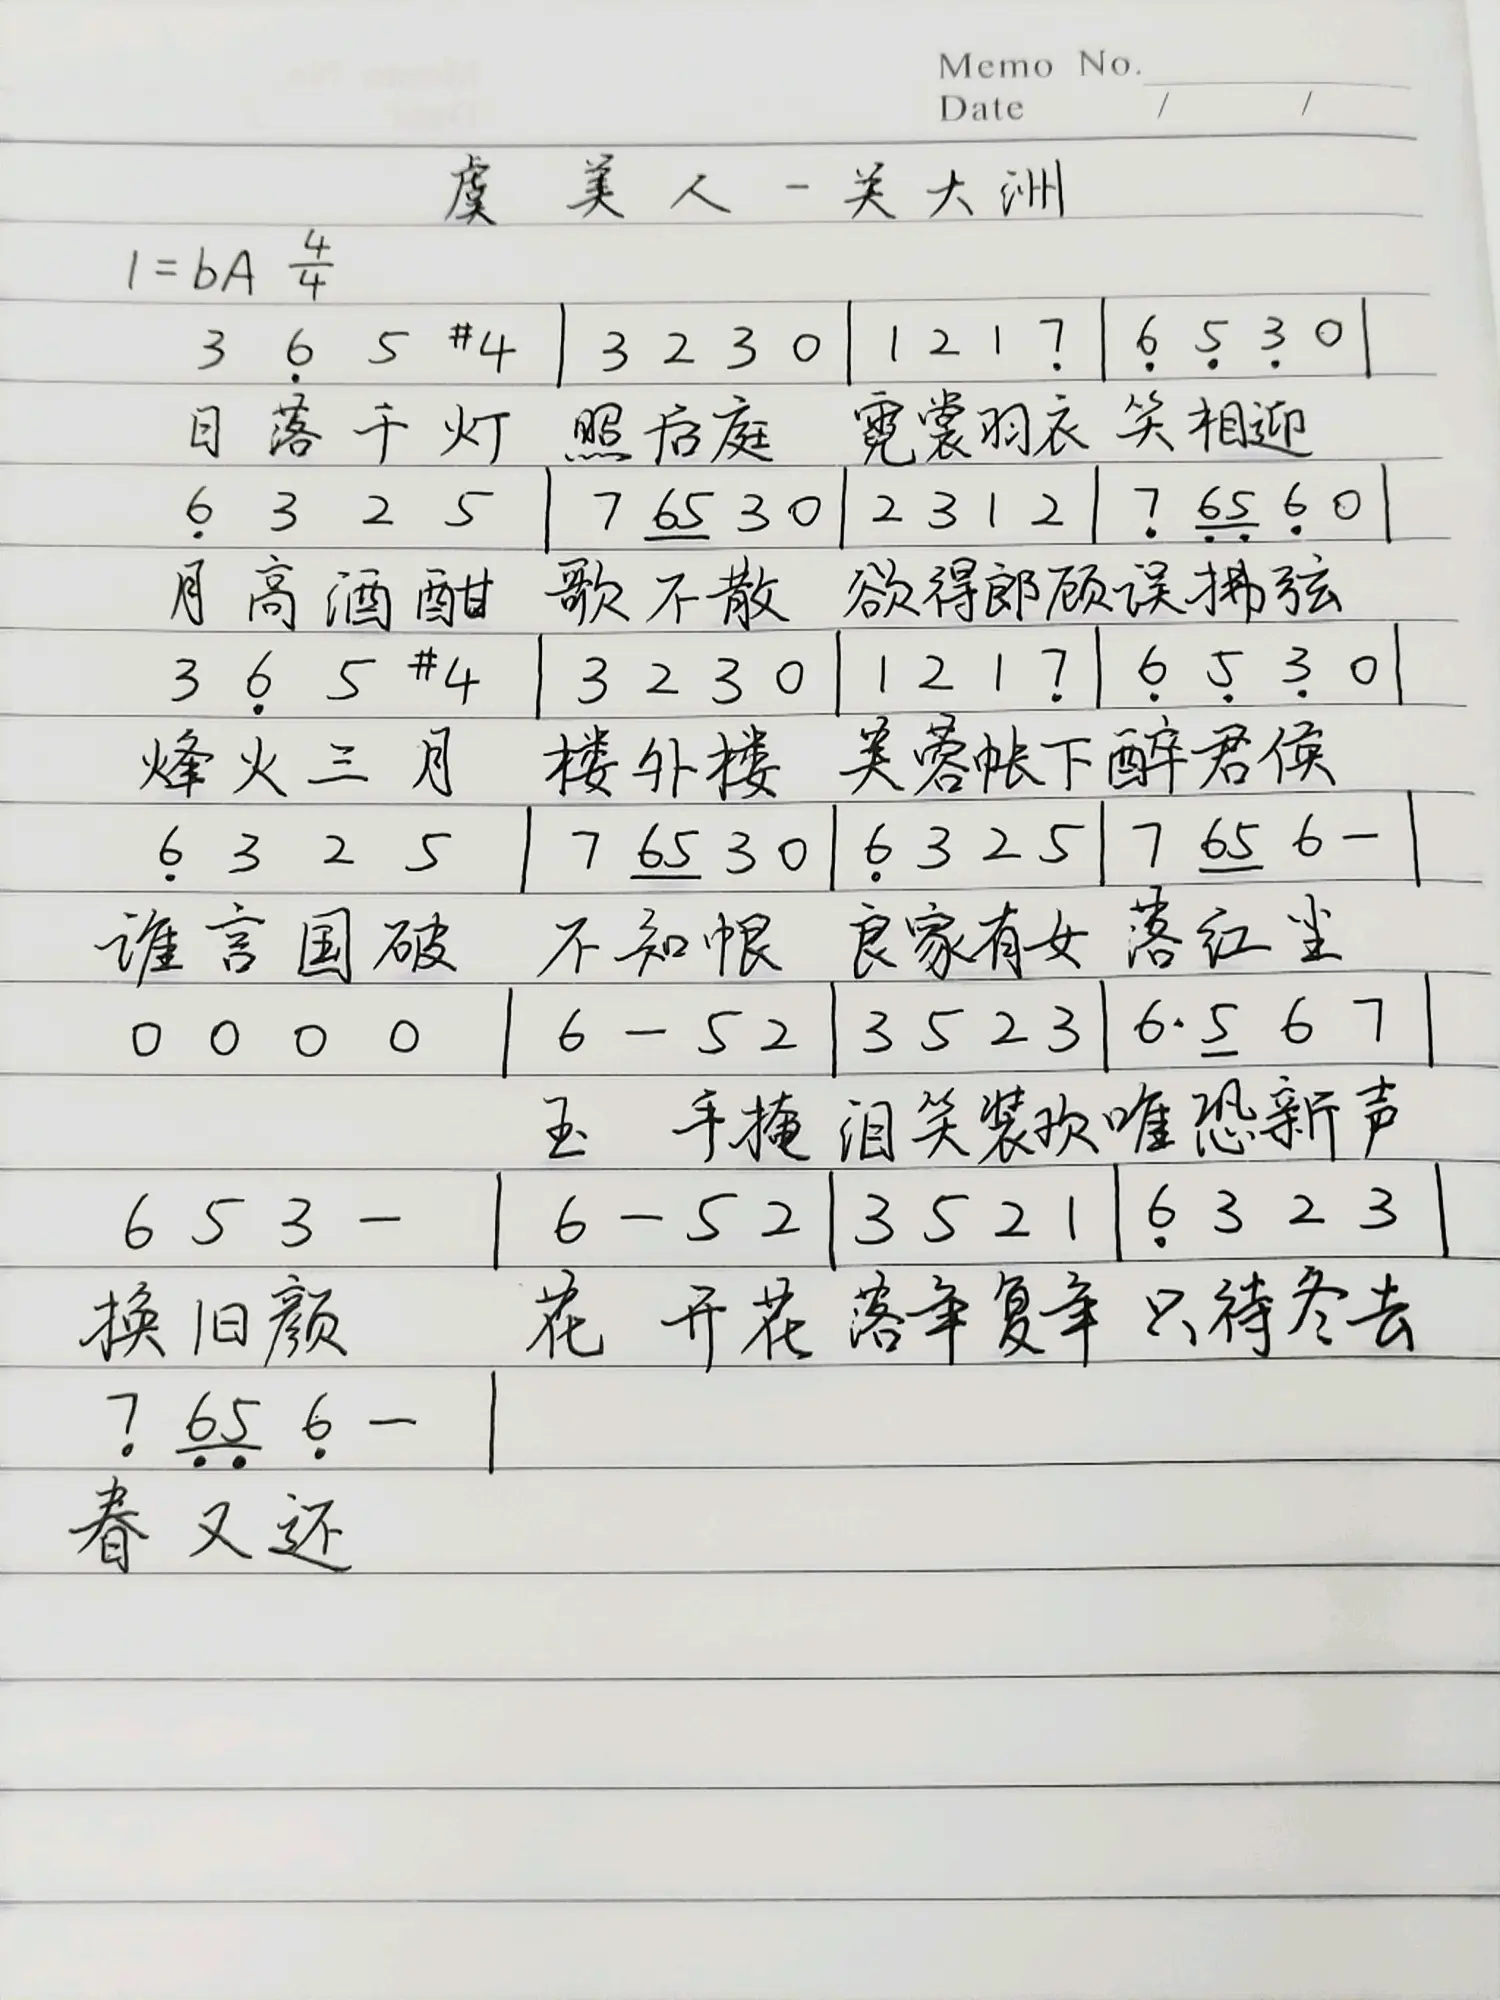 Memo No.
Date / /
虞美人-关大洲
1=bA 4/4
3 6̣ 5 #4 | 3 2 3 0 | 1 2 1 7̣ | 6̣ 5̣ 3̣ 0 |
日落千灯 照后庭 霓裳羽衣 笑相迎
6̣ 3 2 5 | 7 6̲5̲ 3 0 | 2 3 1 2 | 7̣ 6̲̣5̲̣ 6̣ 0 |
月高酒酣 歌不散 欲得郎顾 误拂弦
3 6̣ 5 #4 | 3 2 3 0 | 1 2 1 7̣ | 6̣ 5̣ 3̣ 0 |
烽火三月 楼外楼 芙蓉帐下 醉君侯
6̣ 3 2 5 | 7 6̲5̲ 3 0 | 6̣ 3 2 5 | 7 6̲5̲ 6 - |
谁言国破 不知恨 良家有女 落红尘
0 0 0 0 | 6 - 5 2 | 3 5 2 3 | 6· 5̲ 6 7 |
玉 手掩 泪笑装欢 唯恐新声
6 5 3 - | 6 - 5 2 | 3 5 2 1 | 6̣ 3 2 3 |
换旧颜 花 开花 落年复年 只待冬去
7̣ 6̲̣5̲̣ 6̣ - |
春又还